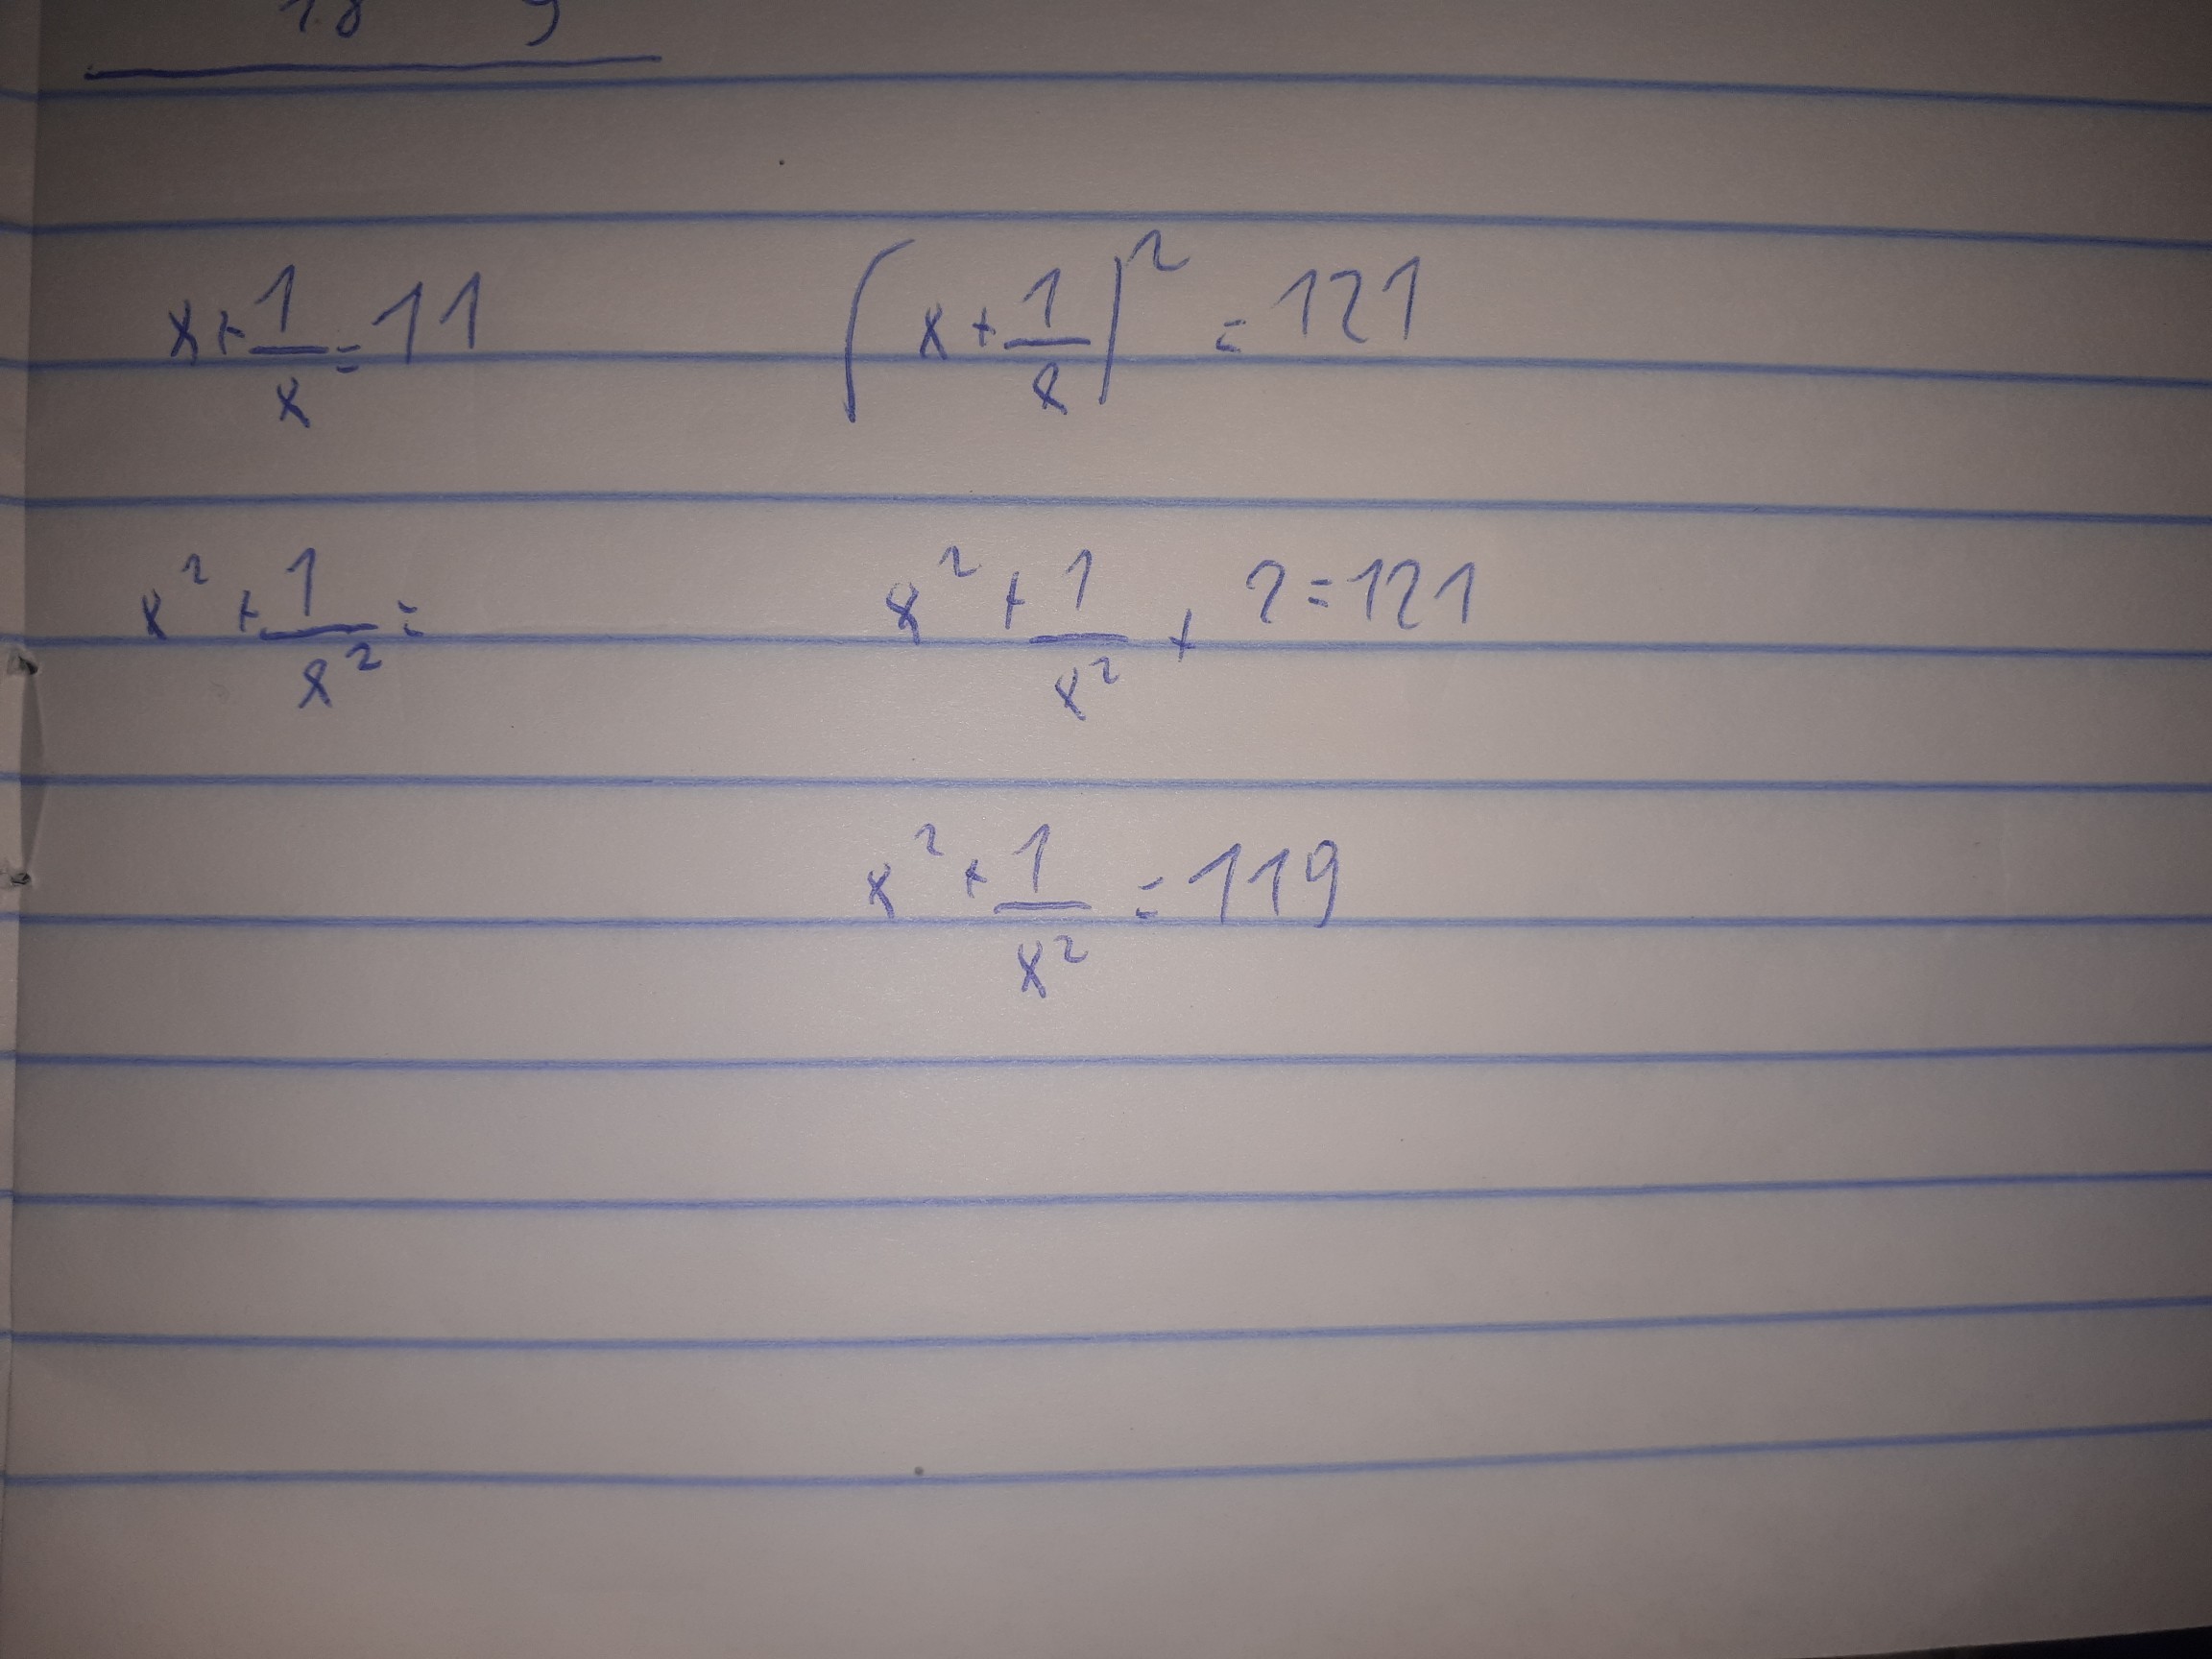 18 9
x + 1/x = 11
(x + 1/x)² = 121
x² + 1/x² =
x² + 1/x² + 2 = 121
x² + 1/x² = 119